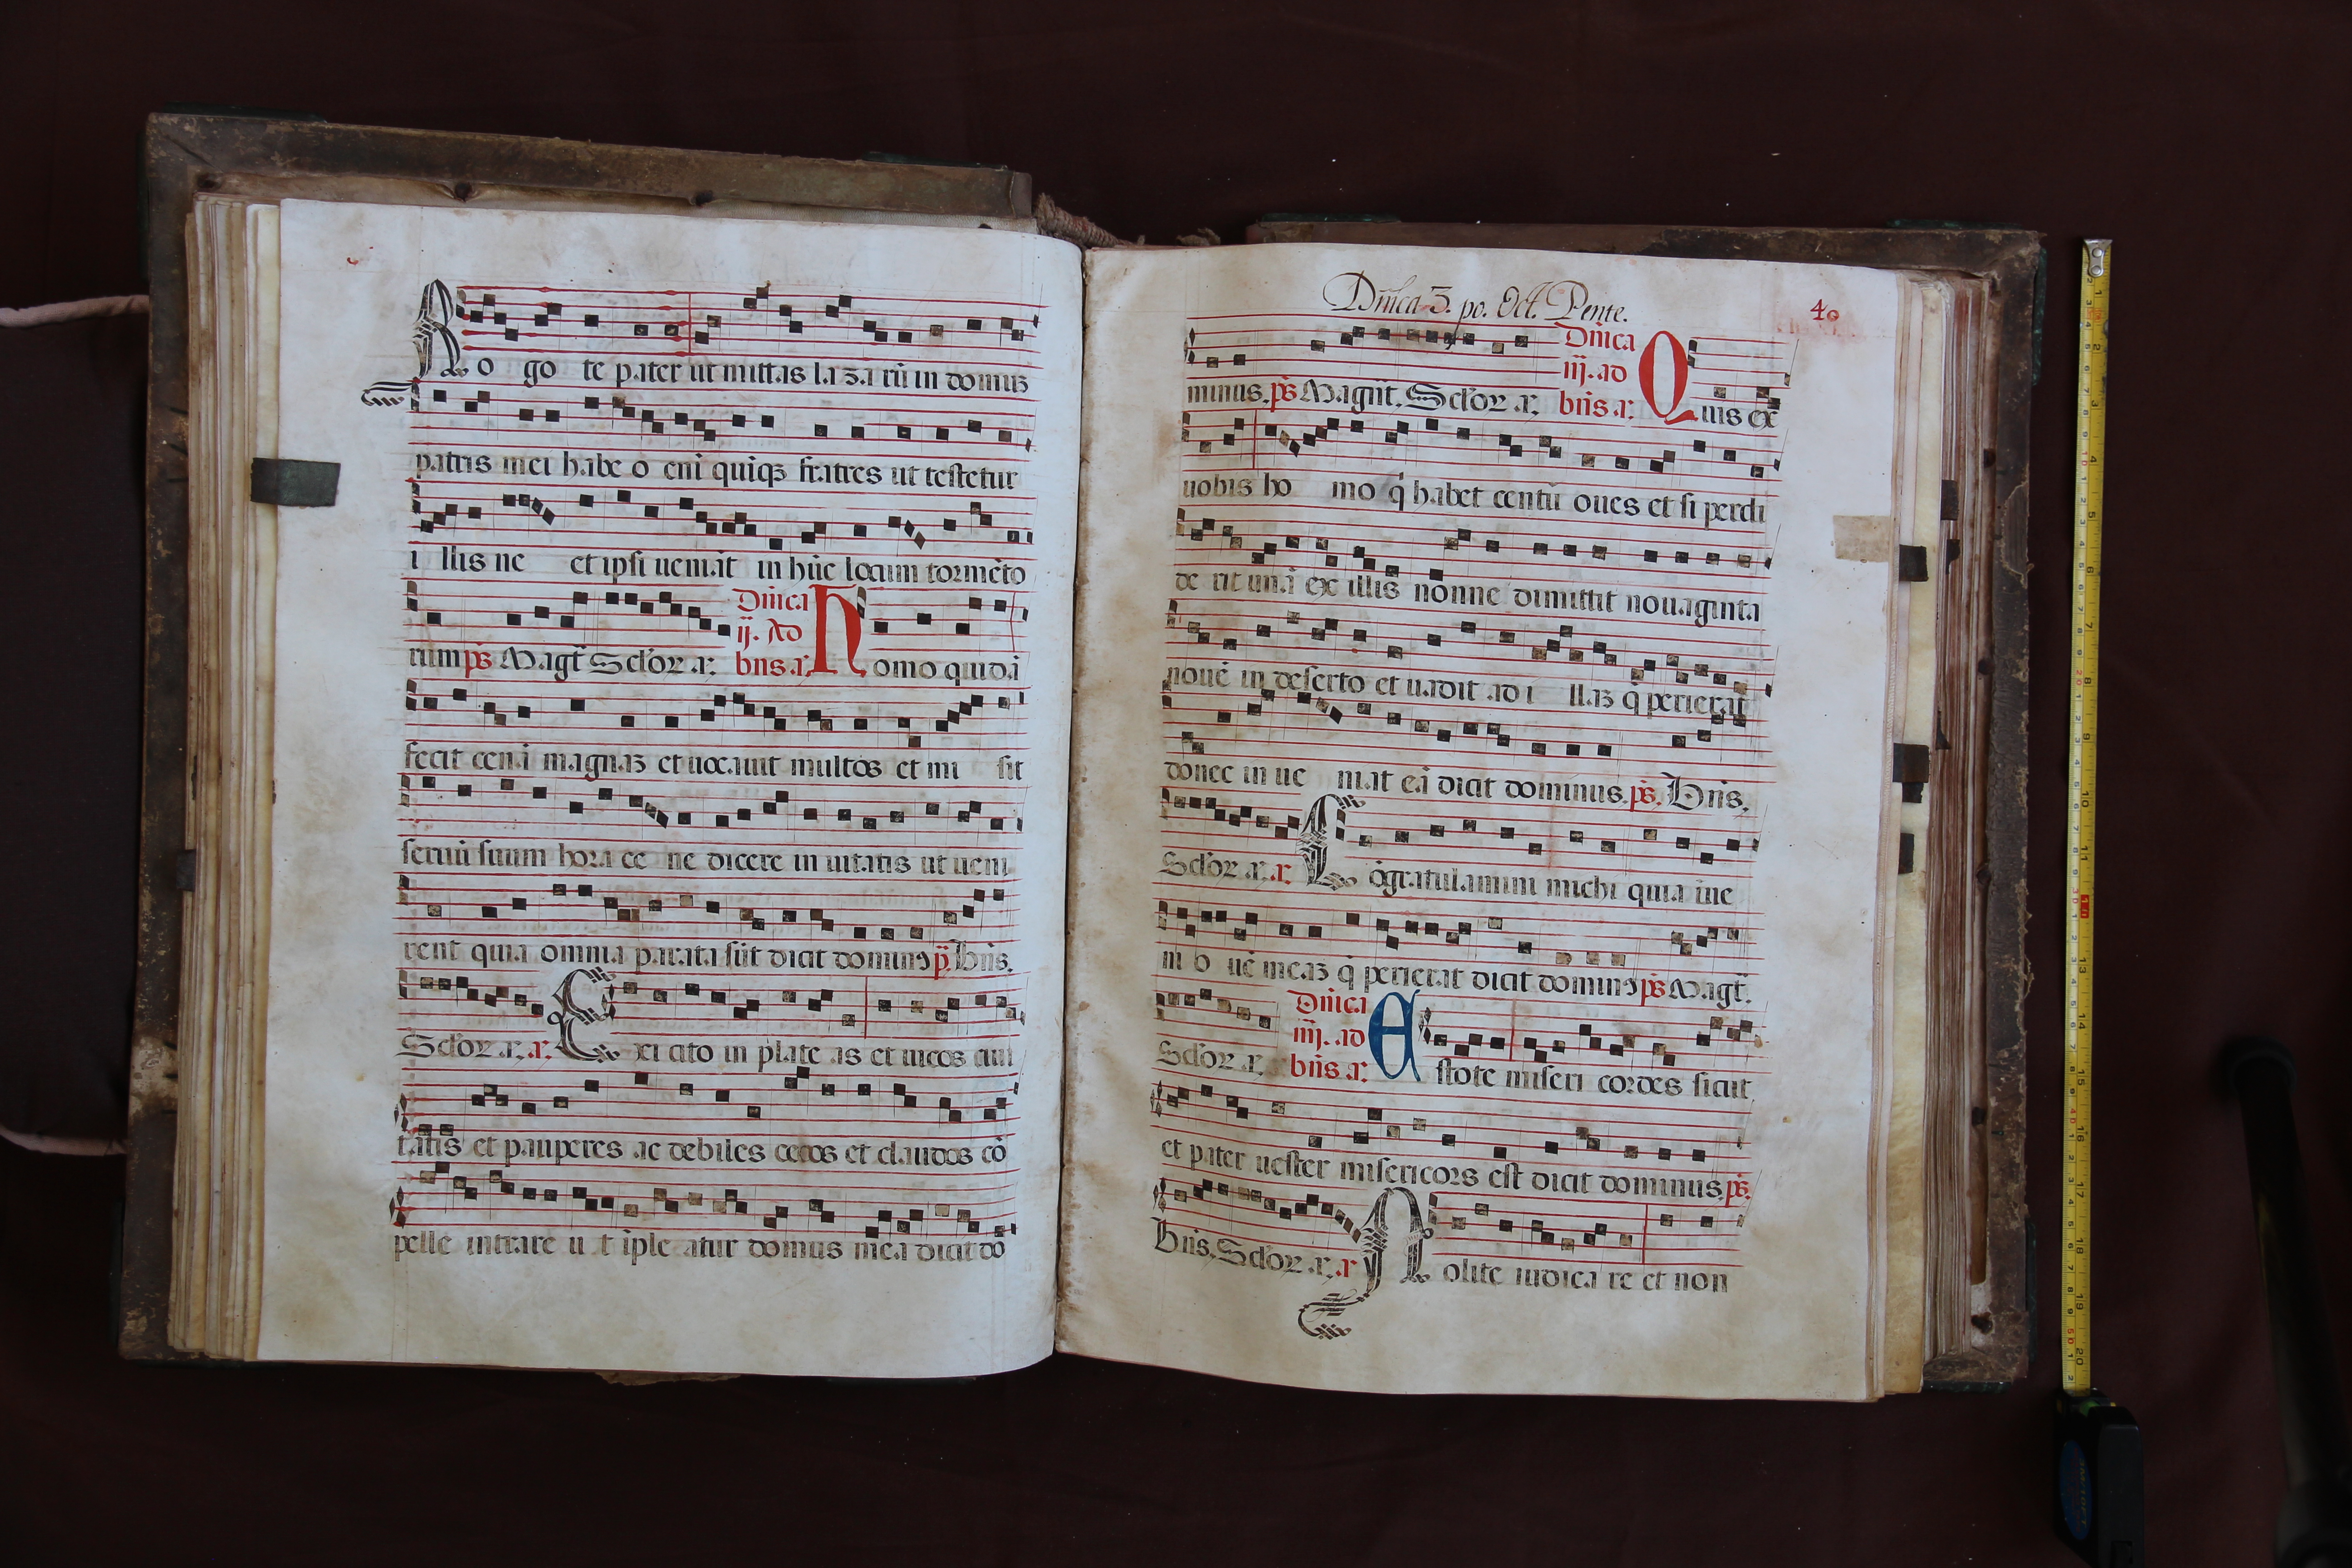 Ro go te pater ut mittas lazarū in domuʒ
patris mei habe o enī quiqʒ fratres ut testetur
i llis ne et ipsi ueniāt in hūc locum tormēto
rum ps̄ Magt̄ Sc̄lor a. Dn̄ica ij. Ad bn̄s a. Homo quidā
fecit cenā magnaʒ et uocauit multos et mi sit
seruū suum hora ce ne dicere in uitatis ut ueni
rent quia omnia parata sūt dicit dominꝰ p̄. Bn̄s.
Sc̄lor. a. a. Exi cito in plate as et uicos ciui
tatis et pauperes ac debiles cecos et claudos cō
pelle intrare u t īple atur domus mea dicit do
Dn̄ica 3. po. Oct. Pente. 40
minus. ps̄ Magnt̄. Sc̄lor a. Dn̄ica iij. ad bn̄s a. Quis ex
uobis ho mo q̄ habet centū oues et si perdi
de rit unā ex illis nonne dimittit nonaginta
nouē in deserto et uadit ad i llaʒ q̄ perierat
donec in ue niat eā dicit dominus. ps̄. Bn̄s.
Sc̄lor. a. a. Cōgratulamini michi quia īue
ni o uē meaʒ q̄ perierat dicit dominꝰ ps̄ Magt̄.
Sc̄lor a. Dn̄ica iiij. ad bn̄s a. Estote miseri cordes sicut
et pater uester misericors est dicit dominus. ps̄.
Bn̄s. Sc̄lor a. a Nolite iudica re et non